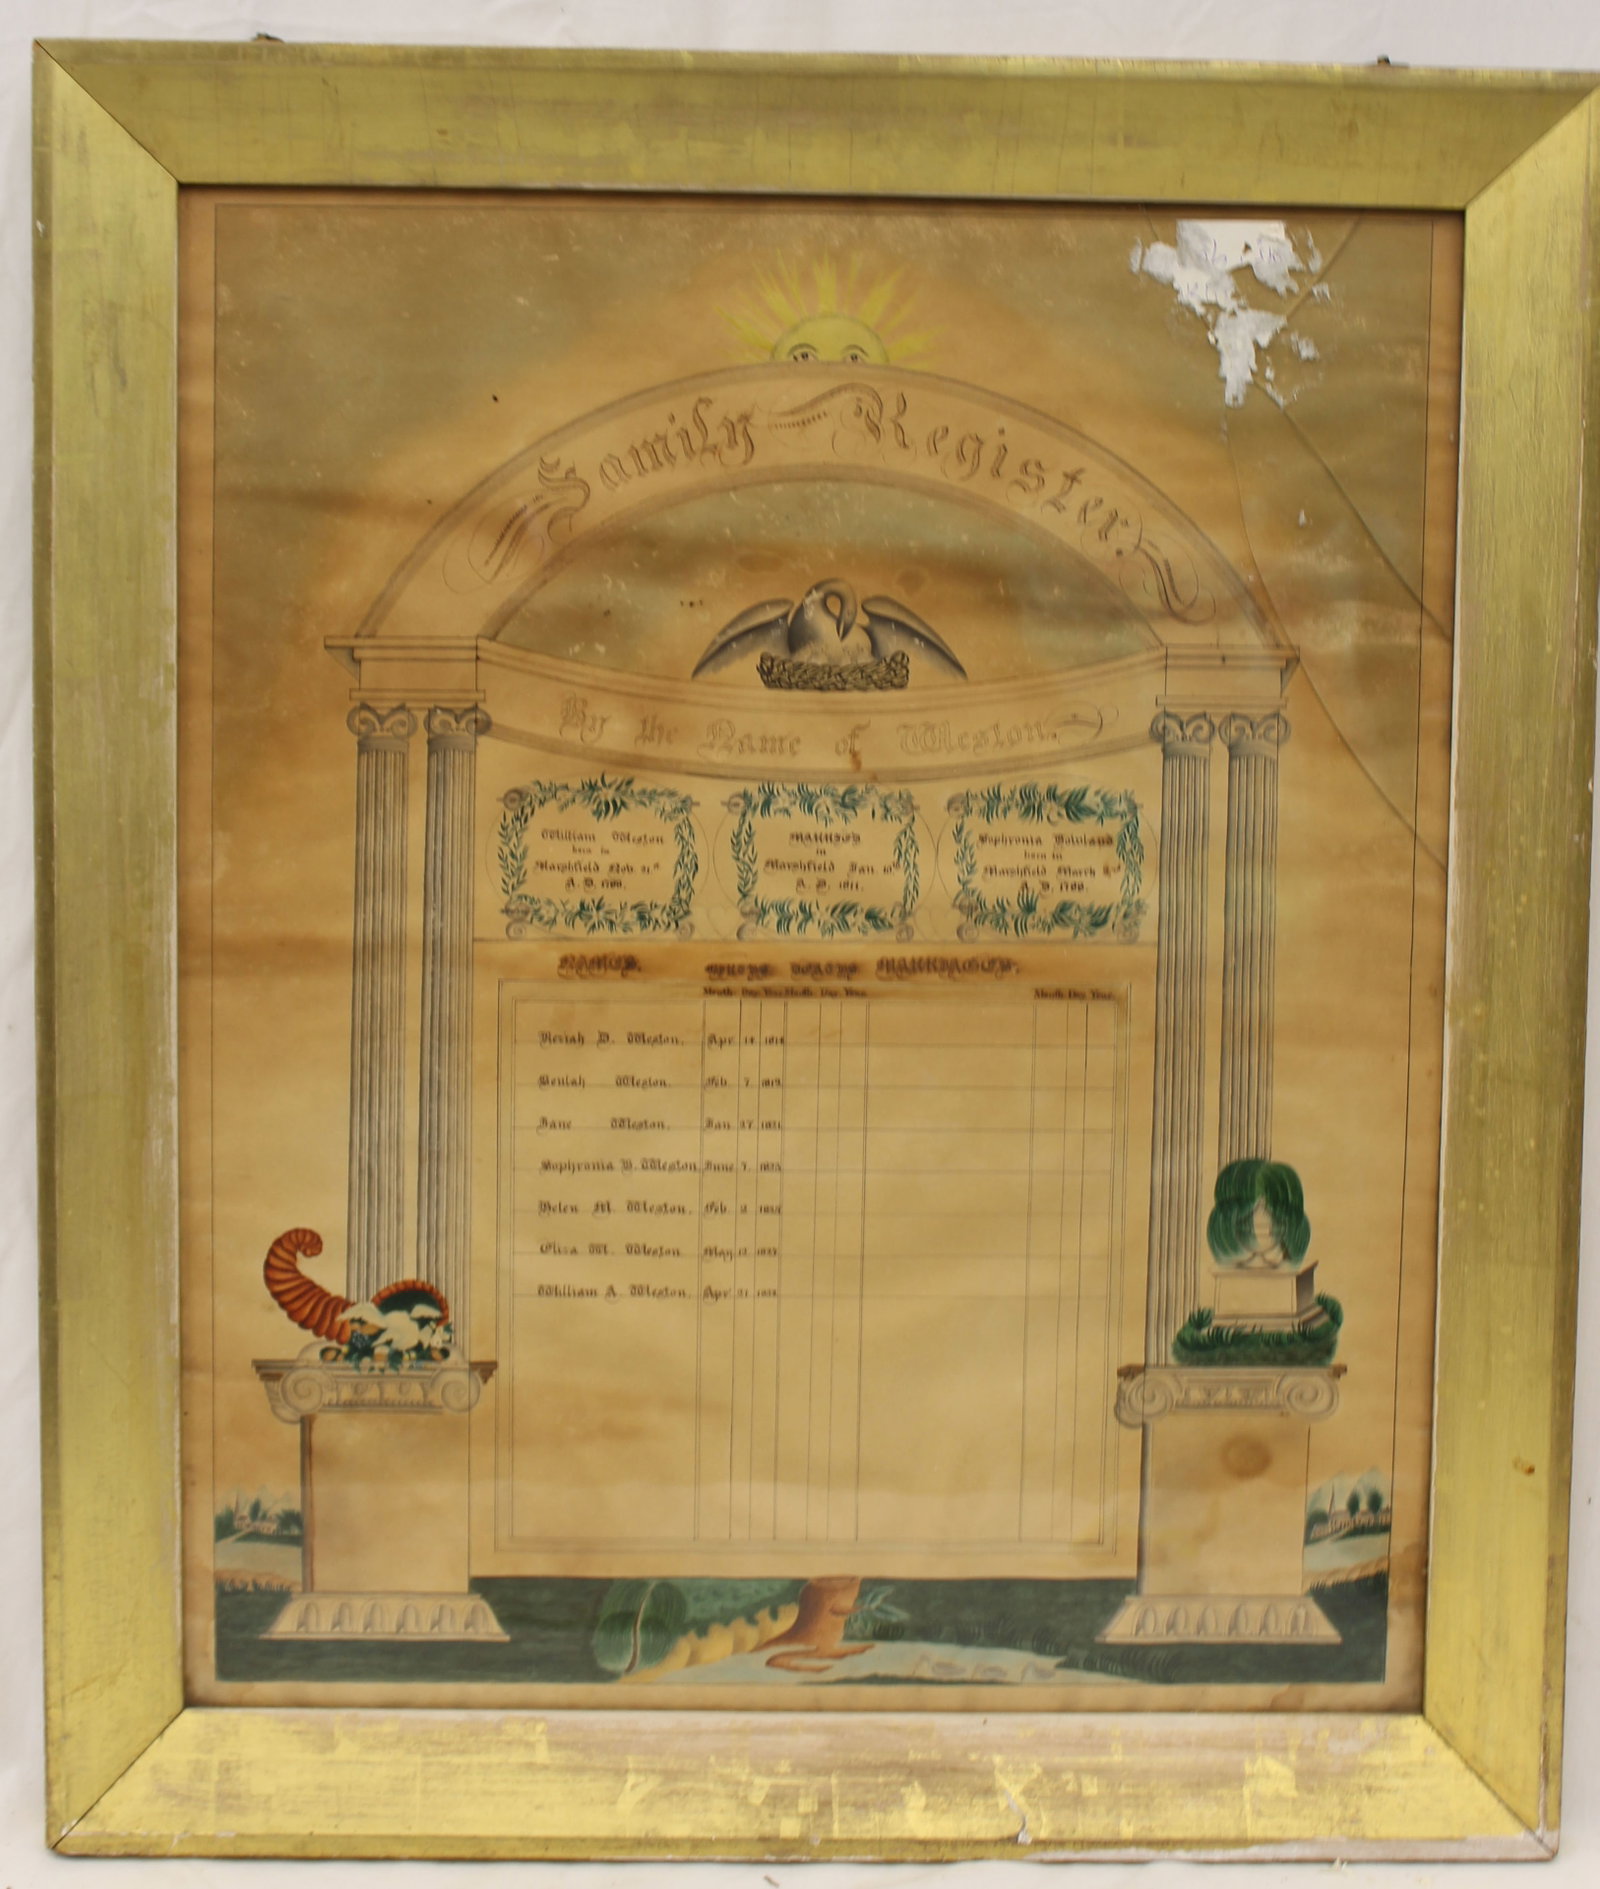 Family Register.
By the Name of Weston.
William Weston
born in
Marshfield Nov. 21st
A. D.
MARRIED
in
Marshfield Jan. 10th
A. D. 1811.
Sophronia
born in
Marshfield March
A. D.
NAMES. BIRTHS DEATHS MARRIAGES.
Month Day Year Month Day Year Month Day Year
D. Weston. Apr. 14
Beulah Weston. Feb. 7 1819
Jane Weston. Jan. 27 1821
Sophronia B. Weston June 7
Helen M. Weston. Feb. 2
Eliza W. Weston May 12
William A. Weston. Apr. 21